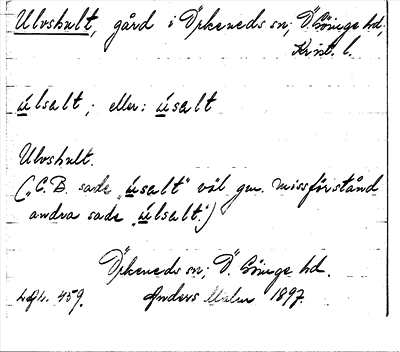 Ulvshult, gård i Örkeneds sn; Ö. Göinge hd,
Krist. l.
úlsalt; eller: úsalt
Ulvshult.
("C.B. sade "úsalt" väl gm. missförstånd
andra sade "úlsalt".)
Örkeneds sn; Ö. Göinge hd.
459. Anders Malm 1897.